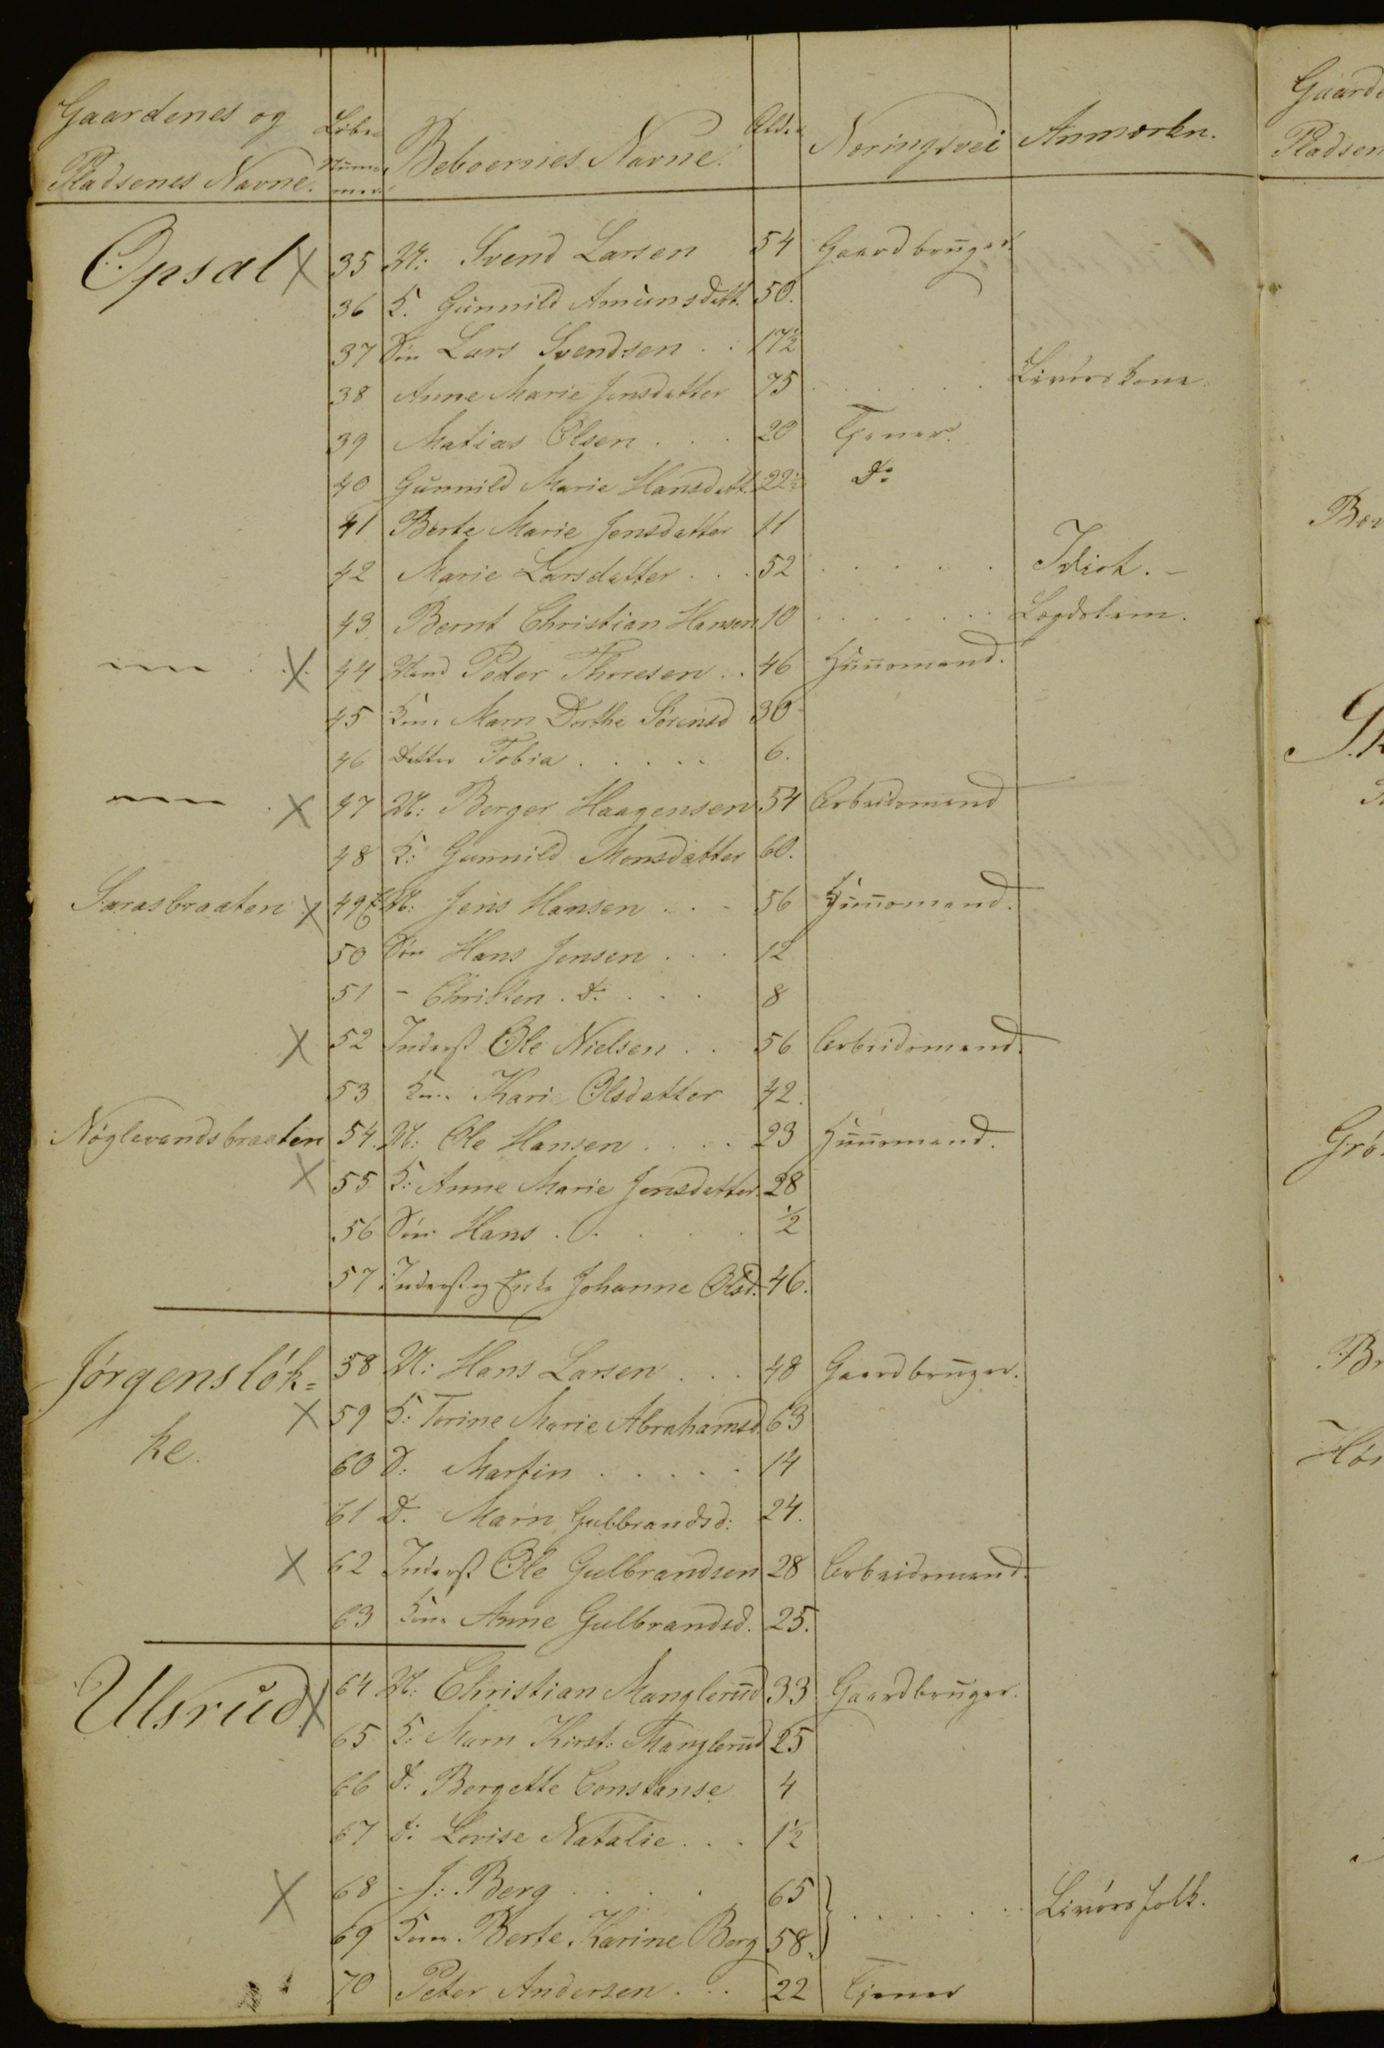 Gaardenes og Pladsenes Navne. Löbe Nummer Beboernes Navne. Alder Næringsvei Anmærkn.
Opsal X 35 M: Svend Larsen 54 Gaardbruger.
36 K. Gunnild Amunsdatt. 50.
37 Sön Lars Svendsen . . 17½
38 Anne Marie Jensdatter 75 . . . . . . Livörskone.
39 Matias Olsen . . . 20 Tjener.
40 Gunnild Marie Hansdatt. 22½ Do
41 Berte Marie Jensdatter 11
42 Marie Larsdatter . . . 52 . . . . . Idiot. –
43 Bernt Christian Hansen 10 . . . . . . Lægdslem.
X 44 Mand Peder Thoresen . . 46 Huusmand.
45 Kone Marn Dorthe Sörensd 30
46 Datter Tobia . . . . . 6.
X 47 M: Berger Haagensen 54 Arbeidsmand
48 K: Gunnild Monsdatter 60.
Sarasbraaten X 49 M: Jens Hansen . . . 56 Huusmand.
50 Sön Hans Jensen . . . 12
51 – Christen . do . . . 8
X 52 Inderst Ole Nielsen . . 56 Arbeidsmand.
53 Kone Kari Olsdatter 42.
Nöglevandsbraaten 54. M: Ole Hansen . . . . 23 Huusmand.
X 55 K: Anne Marie Jensdatter. 28
56 Sön Hans . . . . . ½
57 Inderst og Enke Johanne Olsd. 46.
Jörgenslök= 58 M: Hans Larsen . . . 48 Gaardbruger.
X 59 K: Torine Marie Abrahamsd. 63
ke. 60 S: Martin . . . . . 14
61 D. Marn Gulbrandsd: 24.
X 62 Inderst Ole Gulbrandsen 28 Arbeidsmand.
63 Kone Anne Gulbrandsd. 25.
Ulsrud X 64 M: Christian Manglerud 33 Gaardbruger.
65 K: Marn Kirst: Manglerud 25
66 d: Bergette Constanse 4
67 d: Lovise Natalie . . . 1½
X 68 J: Berg . . . . 65 } . . . . . . Livörsfolk.
69 Kone Berte Karine Berg 58.
70 Peter Andersen . . . 22 Tjener
Gaarde
Pladsen
Grö
Hör